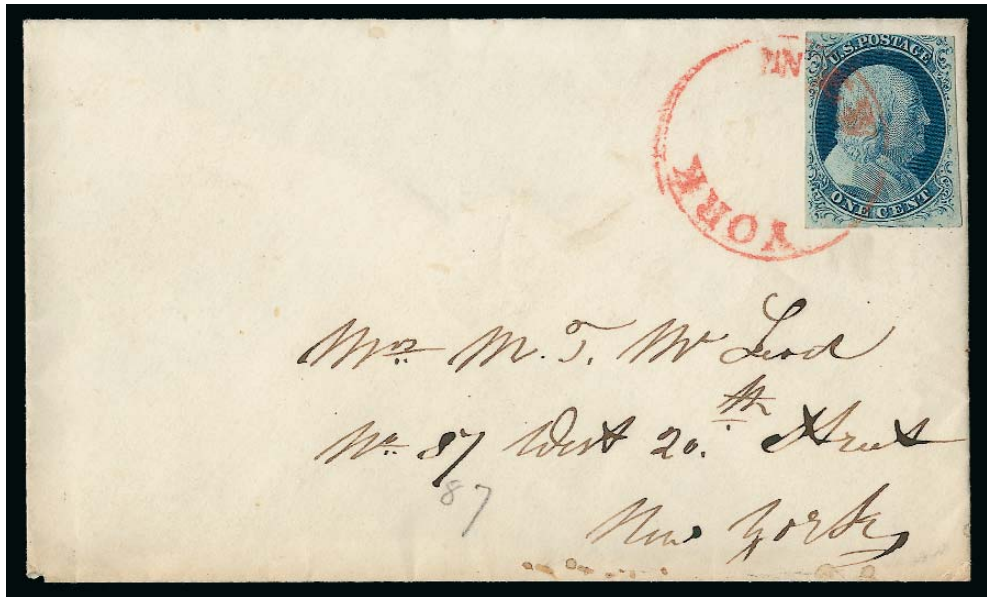 U.S. POSTAGE
ONE CENT
YORK
Mrs. M. T. Mc Leod
No. 87 West 20.th Street
87
New York